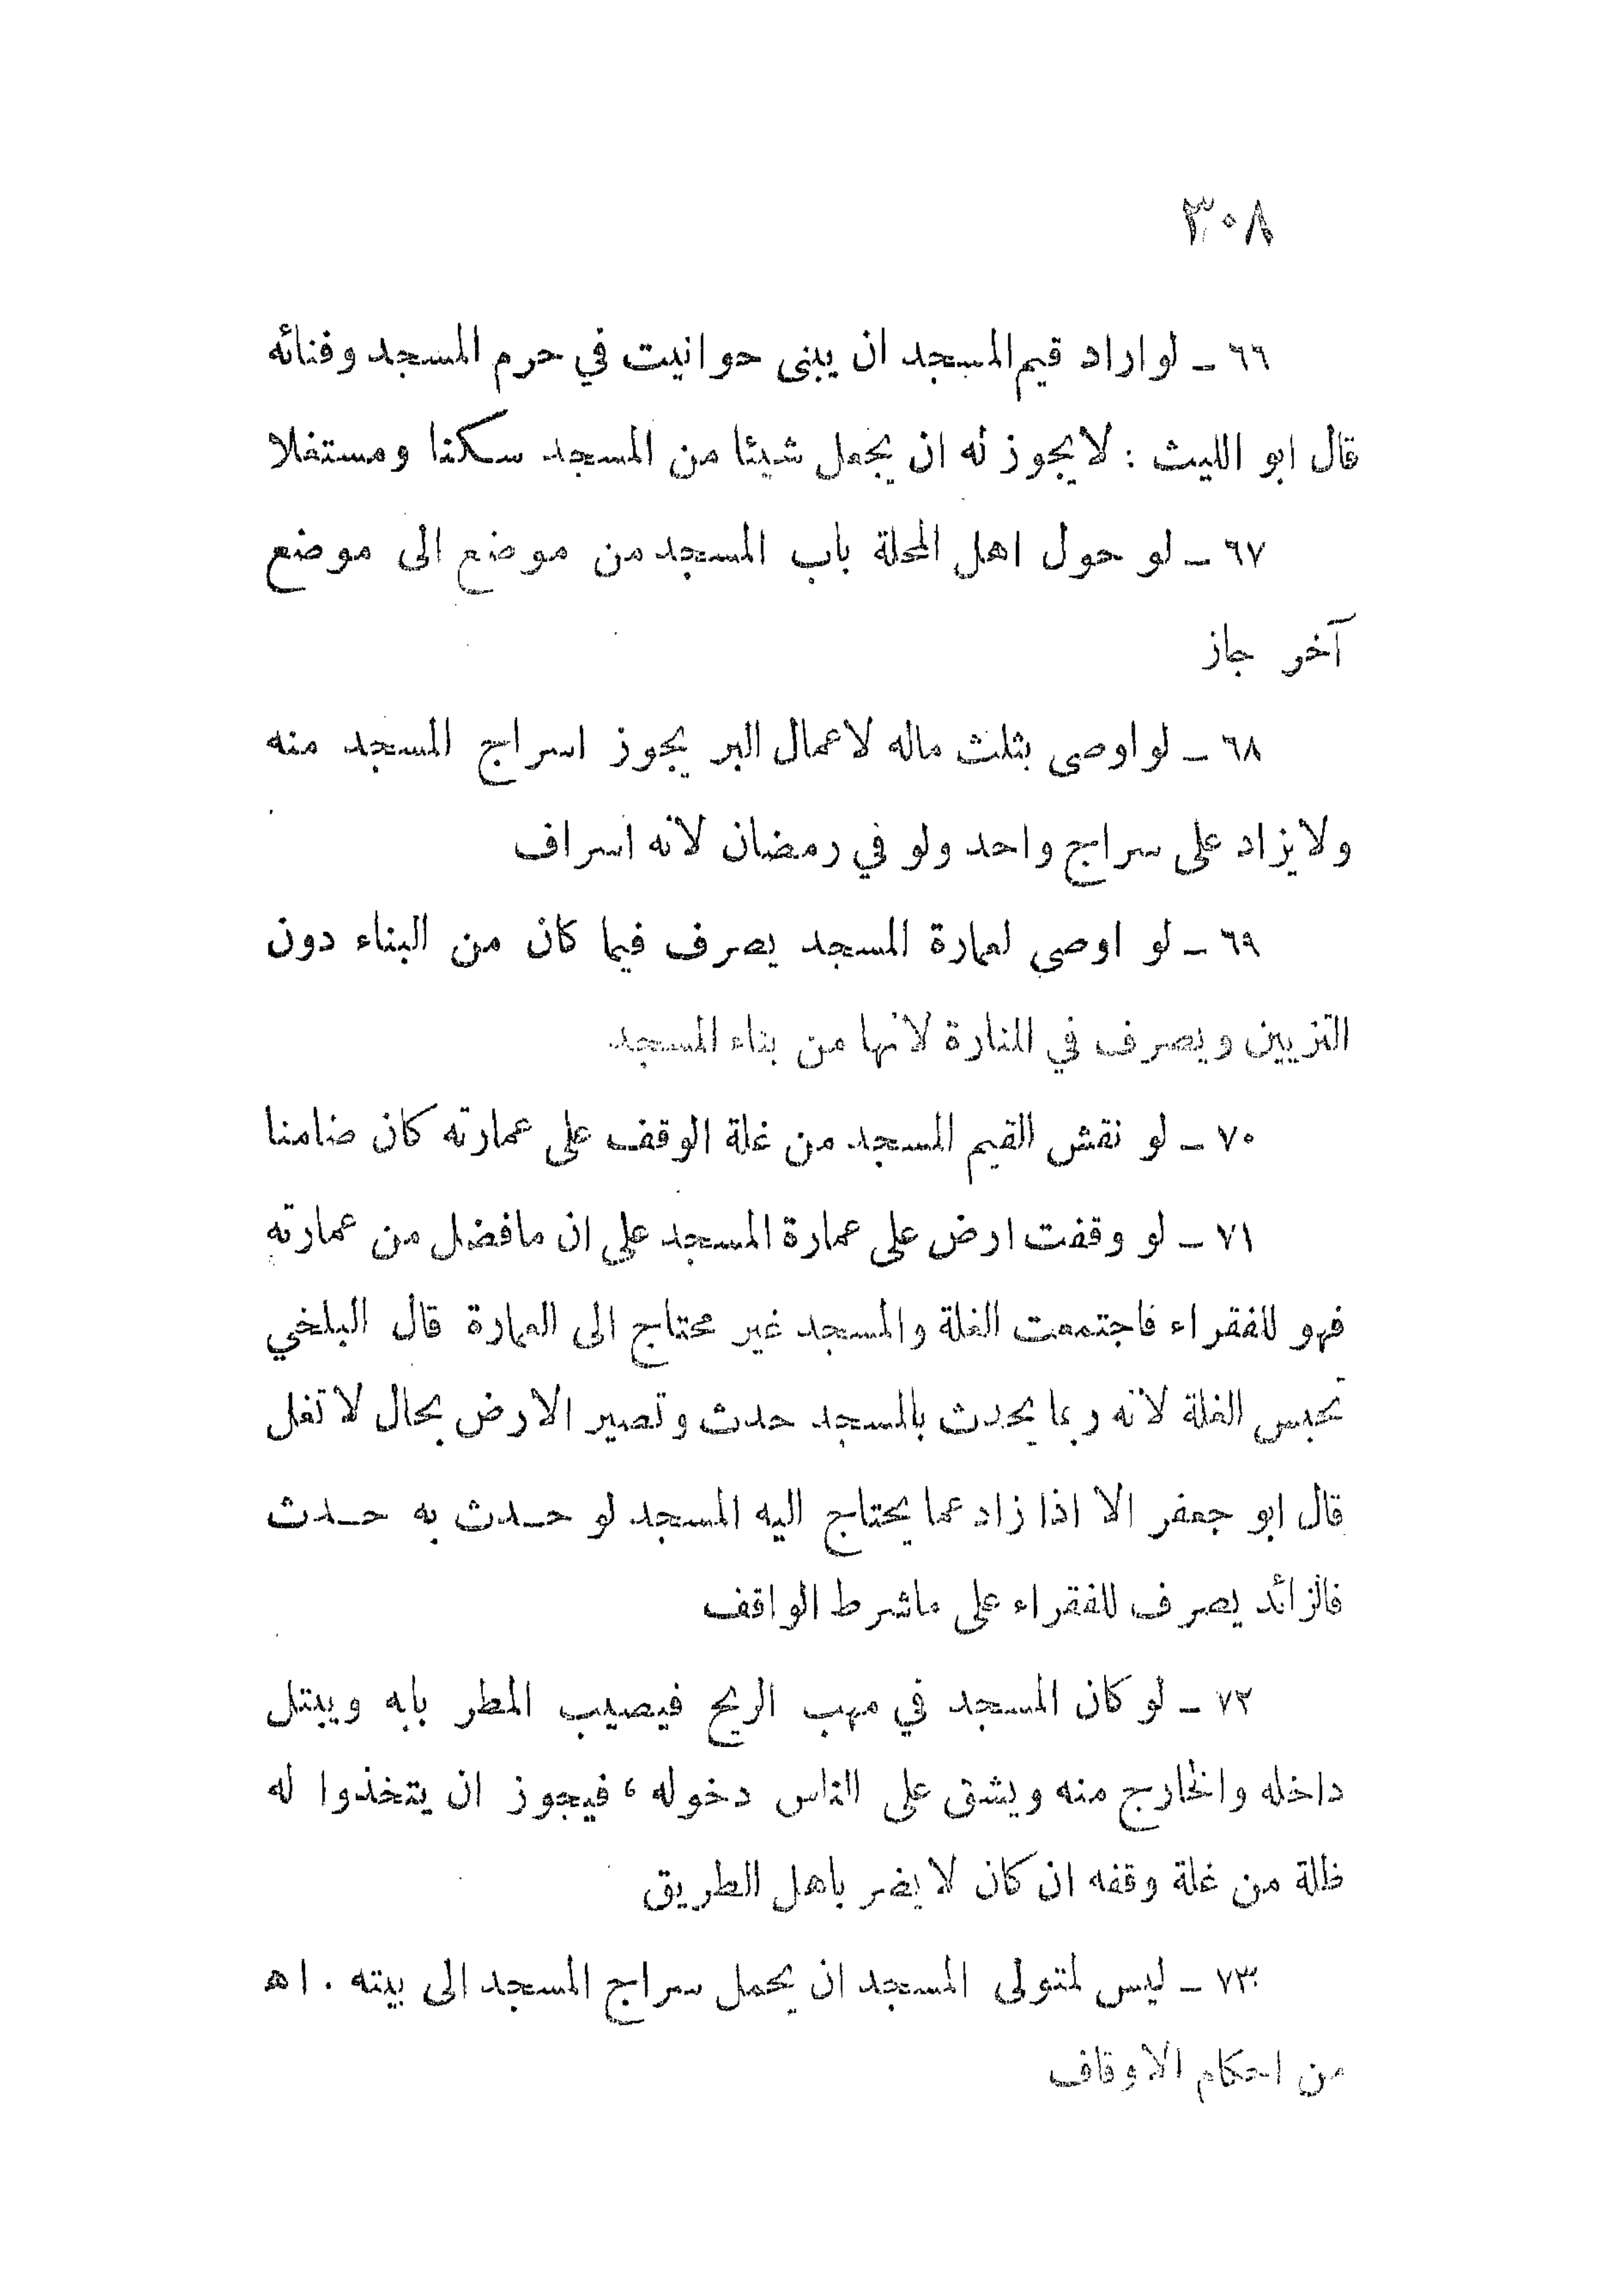 ٣٠٨
٦٦ ـ لو اراد قيم المسجد ان يبنى حوانيت في حرم المسجد وفنائه
قال ابو الليث : لا يجوز له ان يجعل شيئا من المسجد سكنا ومستغلا
٦٧ ـ لو حول اهل المحلة باب المسجد من موضع الى موضع
آخر جاز
٦٨ ـ لو اوصى بثلث ماله لاعمال البر يجوز اسراج المسجد منه
ولا يزاد على سراج واحد ولو في رمضان لانه اسراف
٦٩ ـ لو اوصى لعمارة المسجد يصرف فيما كان من البناء دون
التزيين ويصرف في المنارة لانها من بناء المسجد
٧٠ ـ لو نقش القيم المسجد من غلة الوقف على عمارته كان ضامنا
٧١ ـ لو وقفت ارض على عمارة المسجد على ان مافضل من عمارته
فهو للفقراء فاجتمعت الغلة والمسجد غير محتاج الى العمارة قال البلخي
تحبس الغلة لانه ربما يحدث بالمسجد حدث وتصير الارض بحال لا تغل
قال ابو جعفر الا اذا زاد عما يحتاج اليه المسجد لو حـدث به حـدث
فالزائد يصرف للفقراء على ماشرط الواقف
٧٢ ـ لو كان المسجد في مهب الريح فيصيب المطر بابه ويبتل
داخله والخارج منه ويشق على الناس دخوله ، فيجوز ان يتخذوا له
ظلة من غلة وقفه ان كان لا يضر باهل الطريق
٧٣ ـ ليس لمتولى المسجد ان يحمل سراج المسجد الى بيته . اه
من احكام الاوقاف